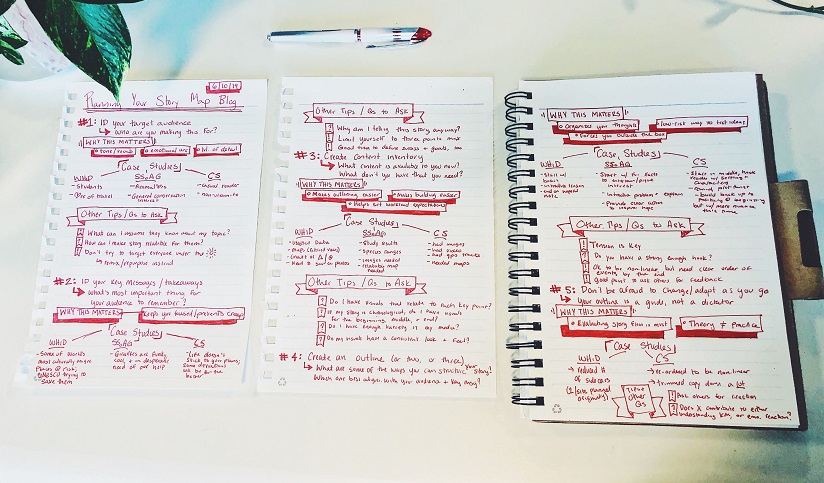 6/10/19
Planning Your Story Map Blog
#1: ID your target audience
↳ Who are you making this for?
WHY THIS MATTERS
• tone/words • emotional arc • lvl. of detail
Case Studies
WHiD
- Students
SS,AG
- General public
- General conservation interest
CS
- Casual reader
Other Tips / Qs to Ask
? What can I assume they know about my topic?
? How can I make story relatable for them?
! Don't try to target everyone under the
#2: ID your key messages / takeaways
↳ What's most important thing for
your audience to remember?
WHY THIS MATTERS
• Keeps you focused/prevents creep
Case Studies
WHiD
- Some of world's
most culturally
places at risk;
UNESCO trying to
save them
SS,AG
- Giraffes are
cool, + in desperate
need of our help
CS
- Life doesn't
stick to your plans;
some deviations
will be for the
better
Other Tips / Qs to Ask
? Why am I telling this story anyway?
! Limit yourself to three points max
! Good time to define success + goals, too
#3: Create content inventory
↳ What content is available to you now?
What don't you have that you need?
WHY THIS MATTERS
• Makes authoring easier • Makes building easier
• Helps set workload expectations
Case Studies
WHiD
SS,AG
- Study results
- Species ranges
- Images needed
- Relatable map
needed
CS
- Had images
- Had video
- Had GPS tracks
- Needed maps
Other Tips / Qs to Ask
? Do I have visuals that relate to each key point?
? If my story is chronological, do I have visuals
for the beginning, middle, + end?
? Do I have enough variety in my media?
? Do my visuals have a consistent look + feel?
#4: Create an outline (or two, or three)
↳ What are some of the ways you can structure your story?
Which one best aligns with your audience + key msg?
WHY THIS MATTERS
• Organizes your thoughts • low-risk way to test ideas
• Forces you outside the box
Case Studies
WHiD
- Start w/
basics
- end on hopeful
note
SS,AG
- Start w/ fun facts
to interest
- Introduce problem + explain
- Provide clear action
to inspire hope
CS
- Start in middle, hook
reader w/ setting +
characters
- build back up
to
but w/ more nuance
this time
Other Tips / Qs to Ask
! Tension is key
? Do you have a strong enough hook?
! OK to be non-linear but need clear order of
events by the end
! Good point to ask others for feedback
#5: Don't be afraid to change/adapt as you go
↳ Your outline is a guide, not a dictator
WHY THIS MATTERS
• Evaluating story flow is must • Theory ≠ practice
Case Studies
WHiD
→ reduced #
of sidecars
(1/site planned
originally)
CS
→ re-ordered to be non-linear
→ trimmed copy down a lot
Tips + Other Qs
! Ask others for reaction
? Does X contribute to either
understanding key, or emo. reaction?